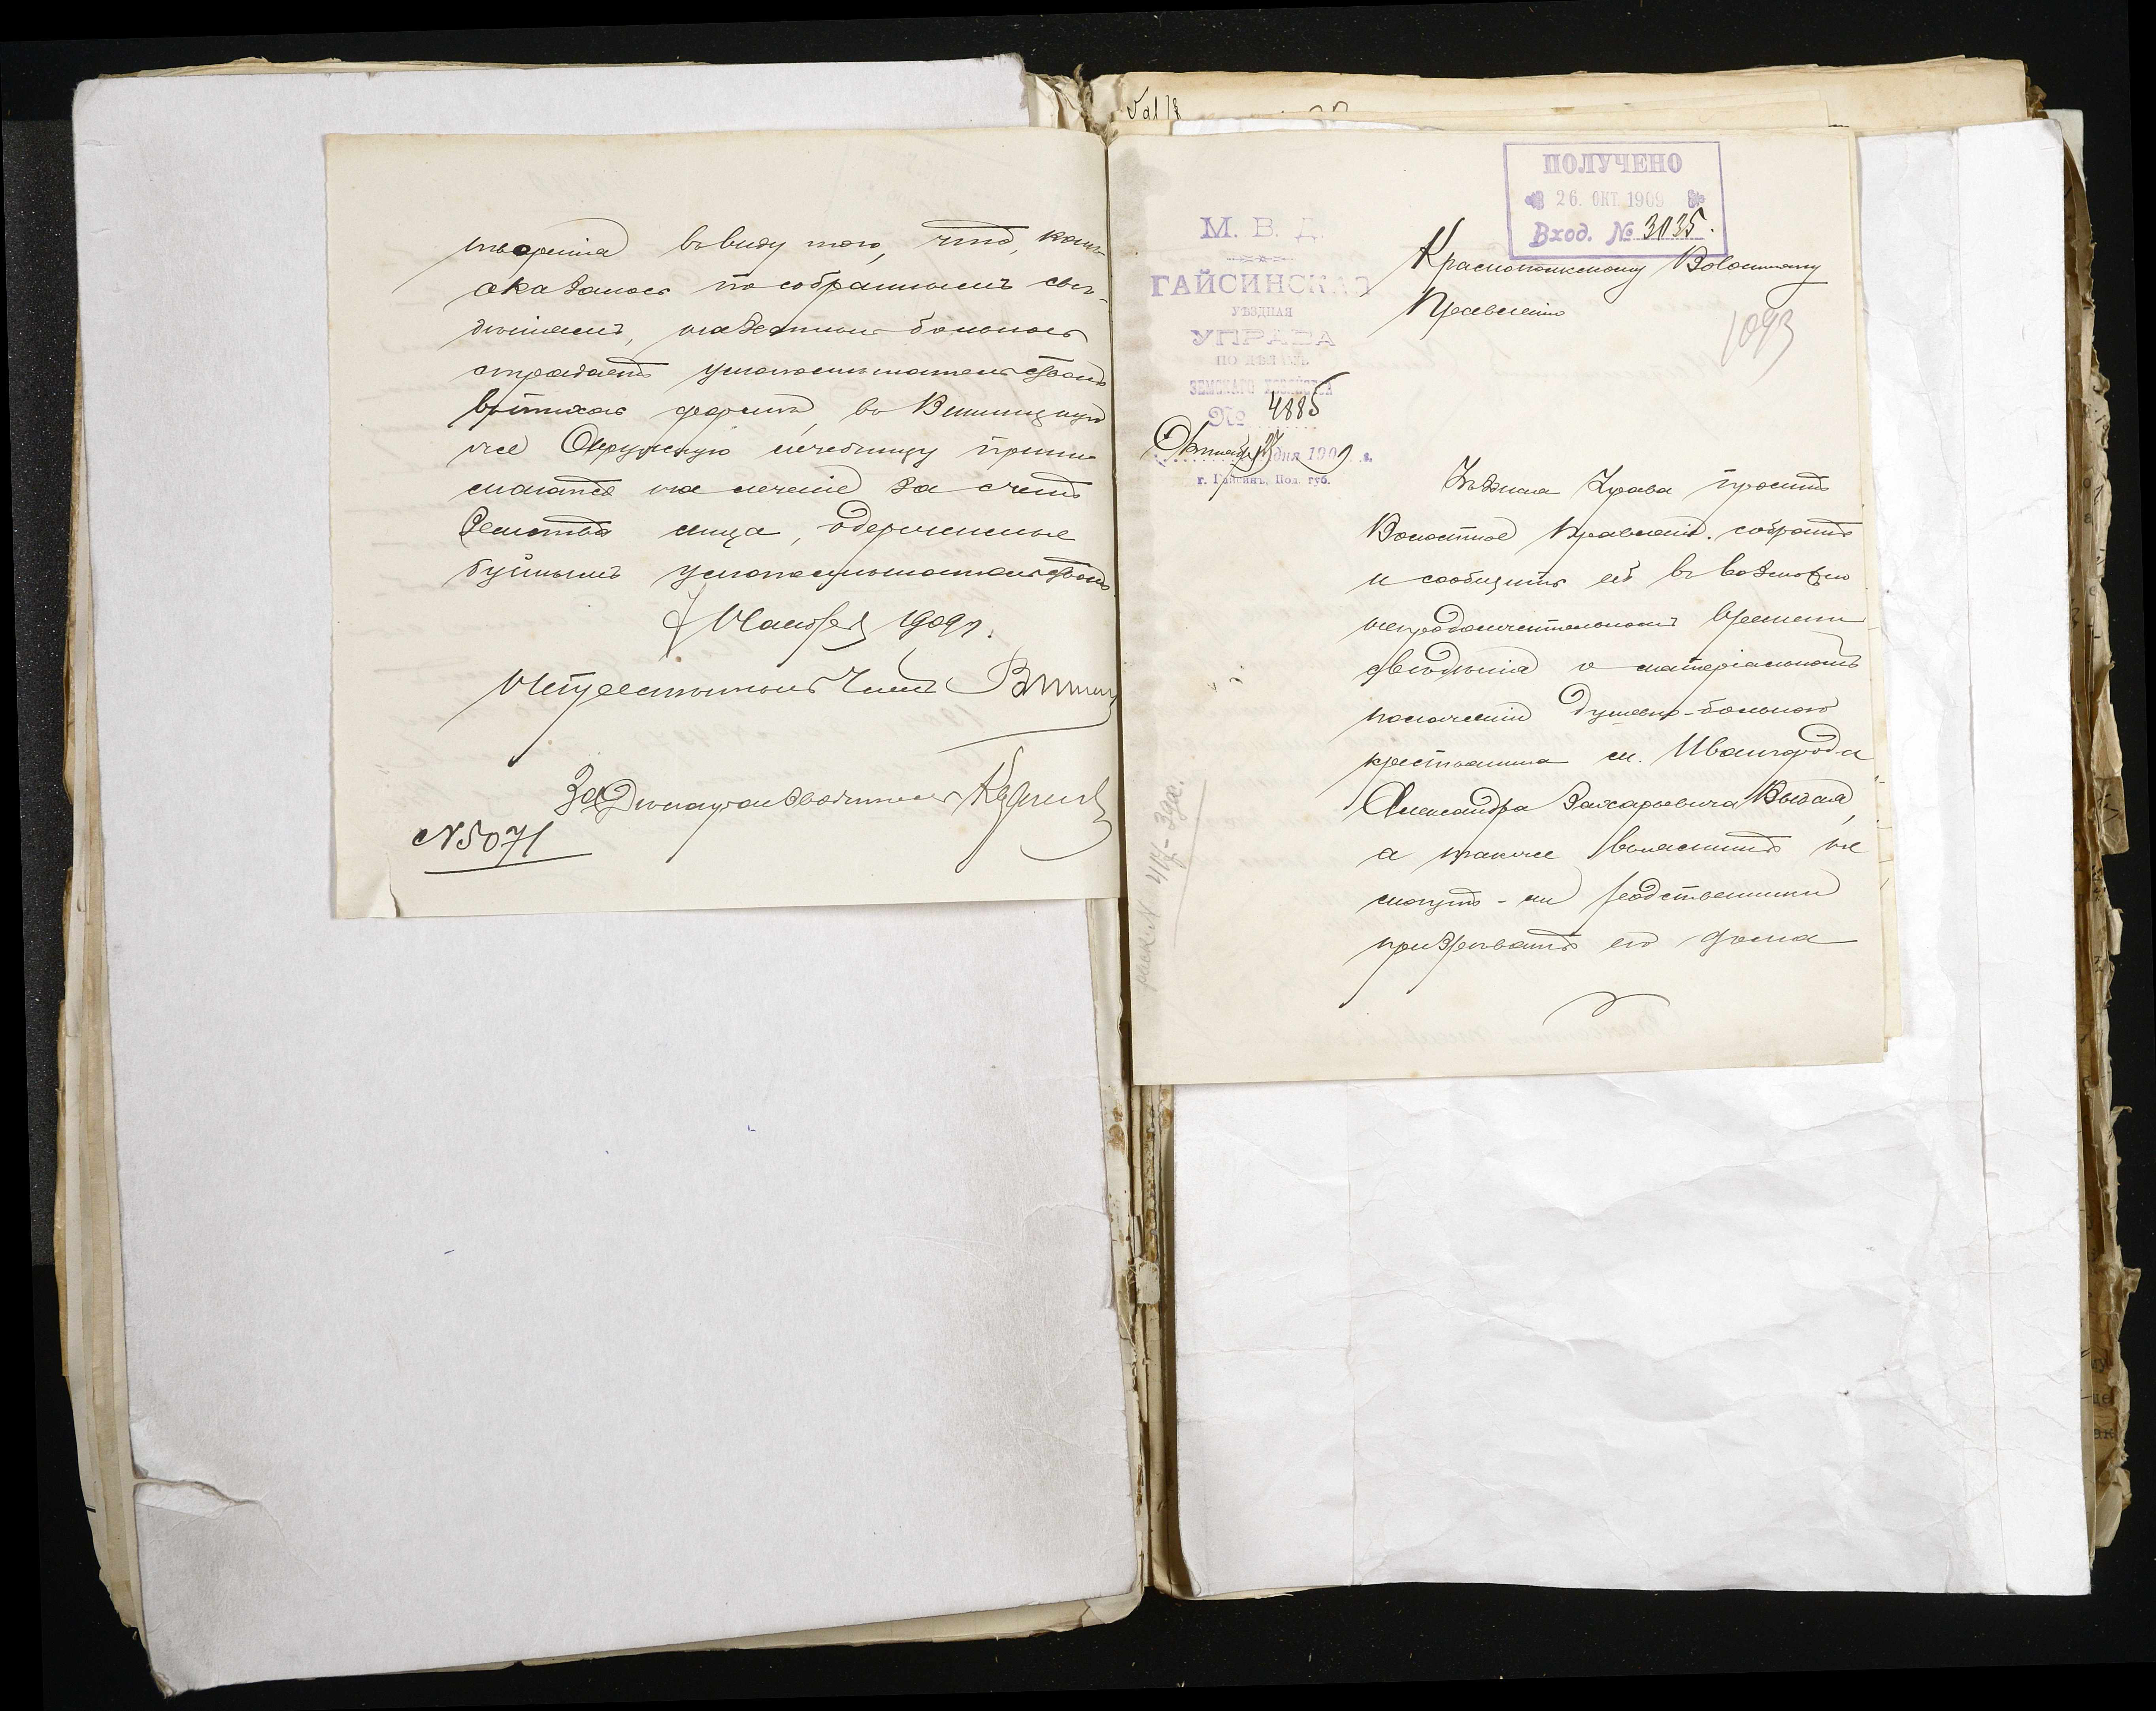 творенія въ виду того, что, какъ
оказалось по собраннымъ свѣ-
дѣніямъ, названный больной
страдаетъ умопомѣшательствомъ
въ тихой формѣ, въ Винницкую
же Окружную лечебницу прини
маются на леченіе за счетъ
Земства лица, одержимые
буйнымъ умопомѣшательствомъ.
Ноября 1909 г.
Непремѣнный Членъ
За Дѣлопроизводителя
№ 5071
ПОЛУЧЕНО
26. ОКТ. 1909
Вход. № 3135.
М. В. Д.
ГАЙСИНСКАЯ
УѢЗДНАЯ
УПРАВА
ПО ДѢЛАМЪ
ЗЕМСКАГО ХОЗЯЙСТВА
№ 4885
Октября дня 1909 г.
г. Гайсинъ, Под. губ.
Краснопольскому Волостному
Правленію
1093
Уѣздная Управа проситъ
Волостное Правленіе собрать
и сообщить ей въ возможно
непродолжительномъ времени
свѣдѣнія о матеріальномъ
положеніи душевно-больного
крестьянина м. Ивангорода
Александра Захарьевича
а также выяснить не
могутъ-ли родственники
призрѣвать его дома